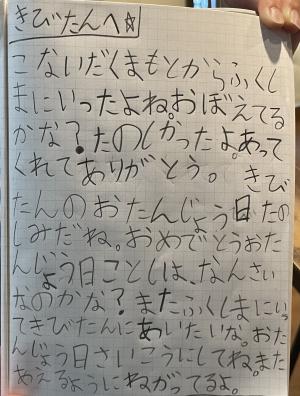 きびたんへ☆
こないだくまもとからふくし
まにいったよね。おぼえてる
かな?たのしかったよ。あって
くれてありがとう。きび
たんのおたんじょう日たの
しみだね。おめでとうおた
んじょう日ことしは、なんさい
なのかな?またふくしまにいっ
てきびたんにあいたいな。おた
んじょう日さいこうにしてね。また
あえるようにねがってるよ。